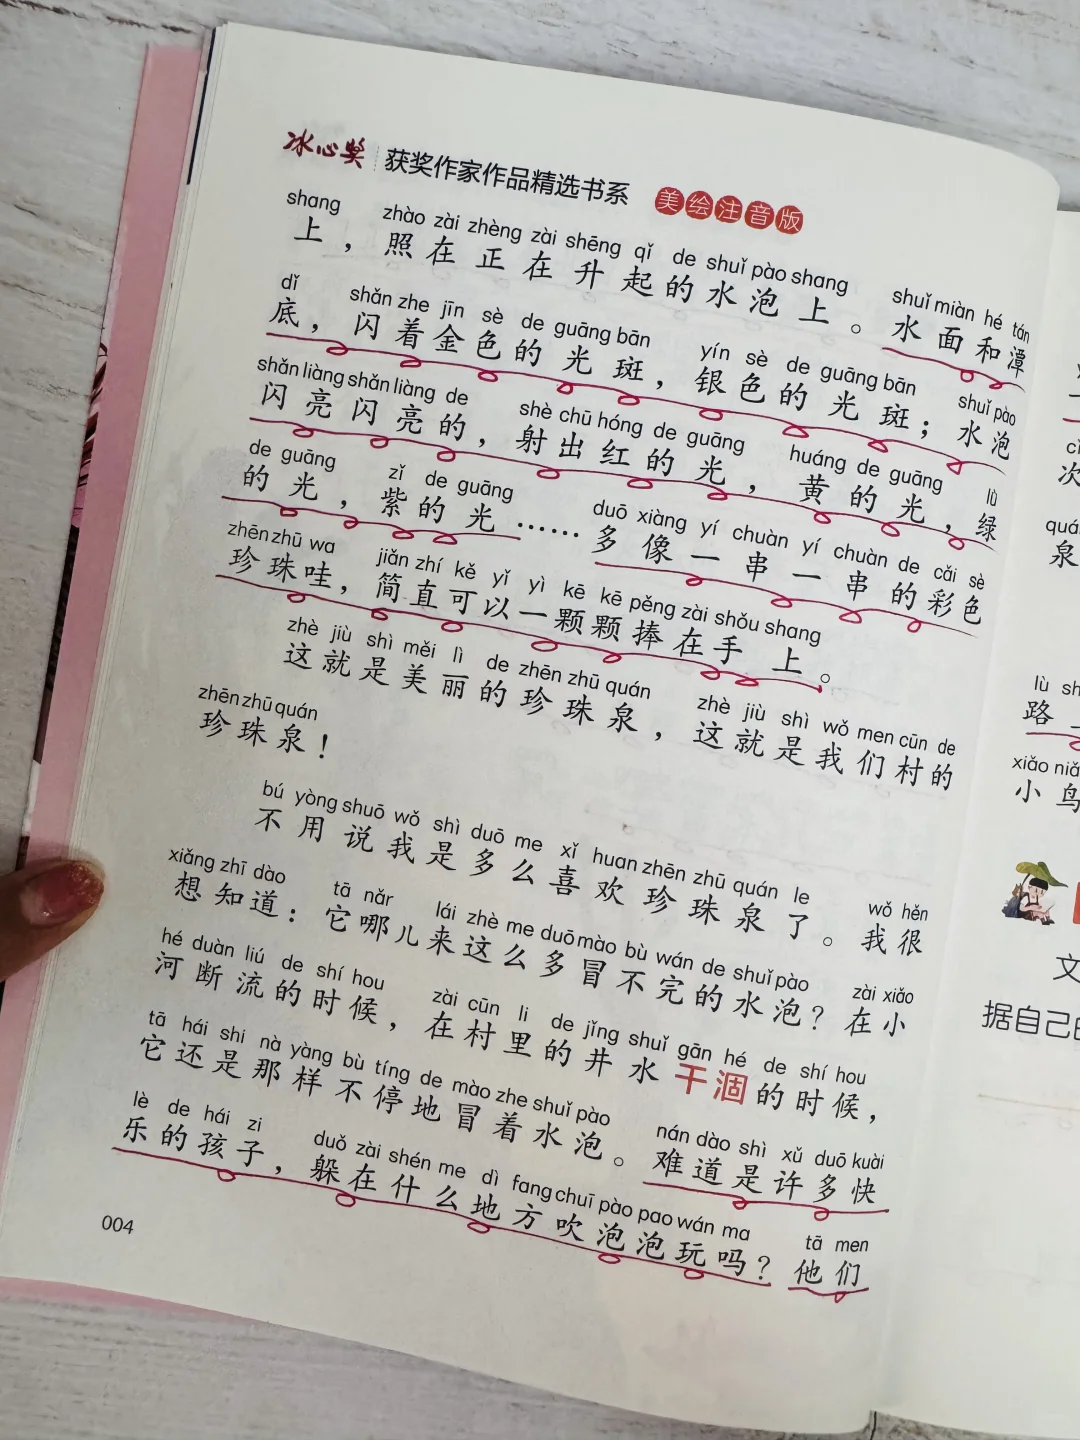 冰心奖 获奖作家作品精选书系 美绘注音版
shang zhào zài zhèng zài shēng qǐ de shuǐ pào shang shuǐ miàn hé tán
上，照在正在升起的水泡上。水面和潭
dǐ shǎn zhe jīn sè de guāng bān yín sè de guāng bān shuǐ pào
底，闪着金色的光斑，银色的光斑；水泡
shǎn liàng shǎn liàng de shè chū hóng de guāng huáng de guāng lù
闪亮闪亮的，射出红的光，黄的光，绿
de guāng zǐ de guāng duō xiàng yí chuàn yí chuàn de cǎi sè
的光，紫的光……多像一串一串的彩色
zhēn zhū wa jiǎn zhí kě yǐ yì kē kē pěng zài shǒu shang
珍珠哇，简直可以一颗颗捧在手上。
zhè jiù shì měi lì de zhēn zhū quán zhè jiù shì wǒ men cūn de
这就是美丽的珍珠泉，这就是我们村的
zhēn zhū quán
珍珠泉！
bú yòng shuō wǒ shì duō me xǐ huan zhēn zhū quán le wǒ hěn
不用说我是多么喜欢珍珠泉了。我很
xiǎng zhī dào tā nǎr lái zhè me duō mào bù wán de shuǐ pào zài xiǎo
想知道：它哪儿来这么多冒不完的水泡？在小
hé duàn liú de shí hou zài cūn li de jǐng shuǐ gān hé de shí hou
河断流的时候，在村里的井水干涸的时候，
tā hái shi nà yàng bù tíng de mào zhe shuǐ pào nán dào shì xǔ duō kuài
它还是那样不停地冒着水泡。难道是许多快
lè de hái zi duǒ zài shén me dì fang chuī pào pao wán ma tā men
乐的孩子，躲在什么地方吹泡泡玩吗？他们
004
次
quán
泉
lù
路
xiǎo niǎ
小鸟
文
据自己